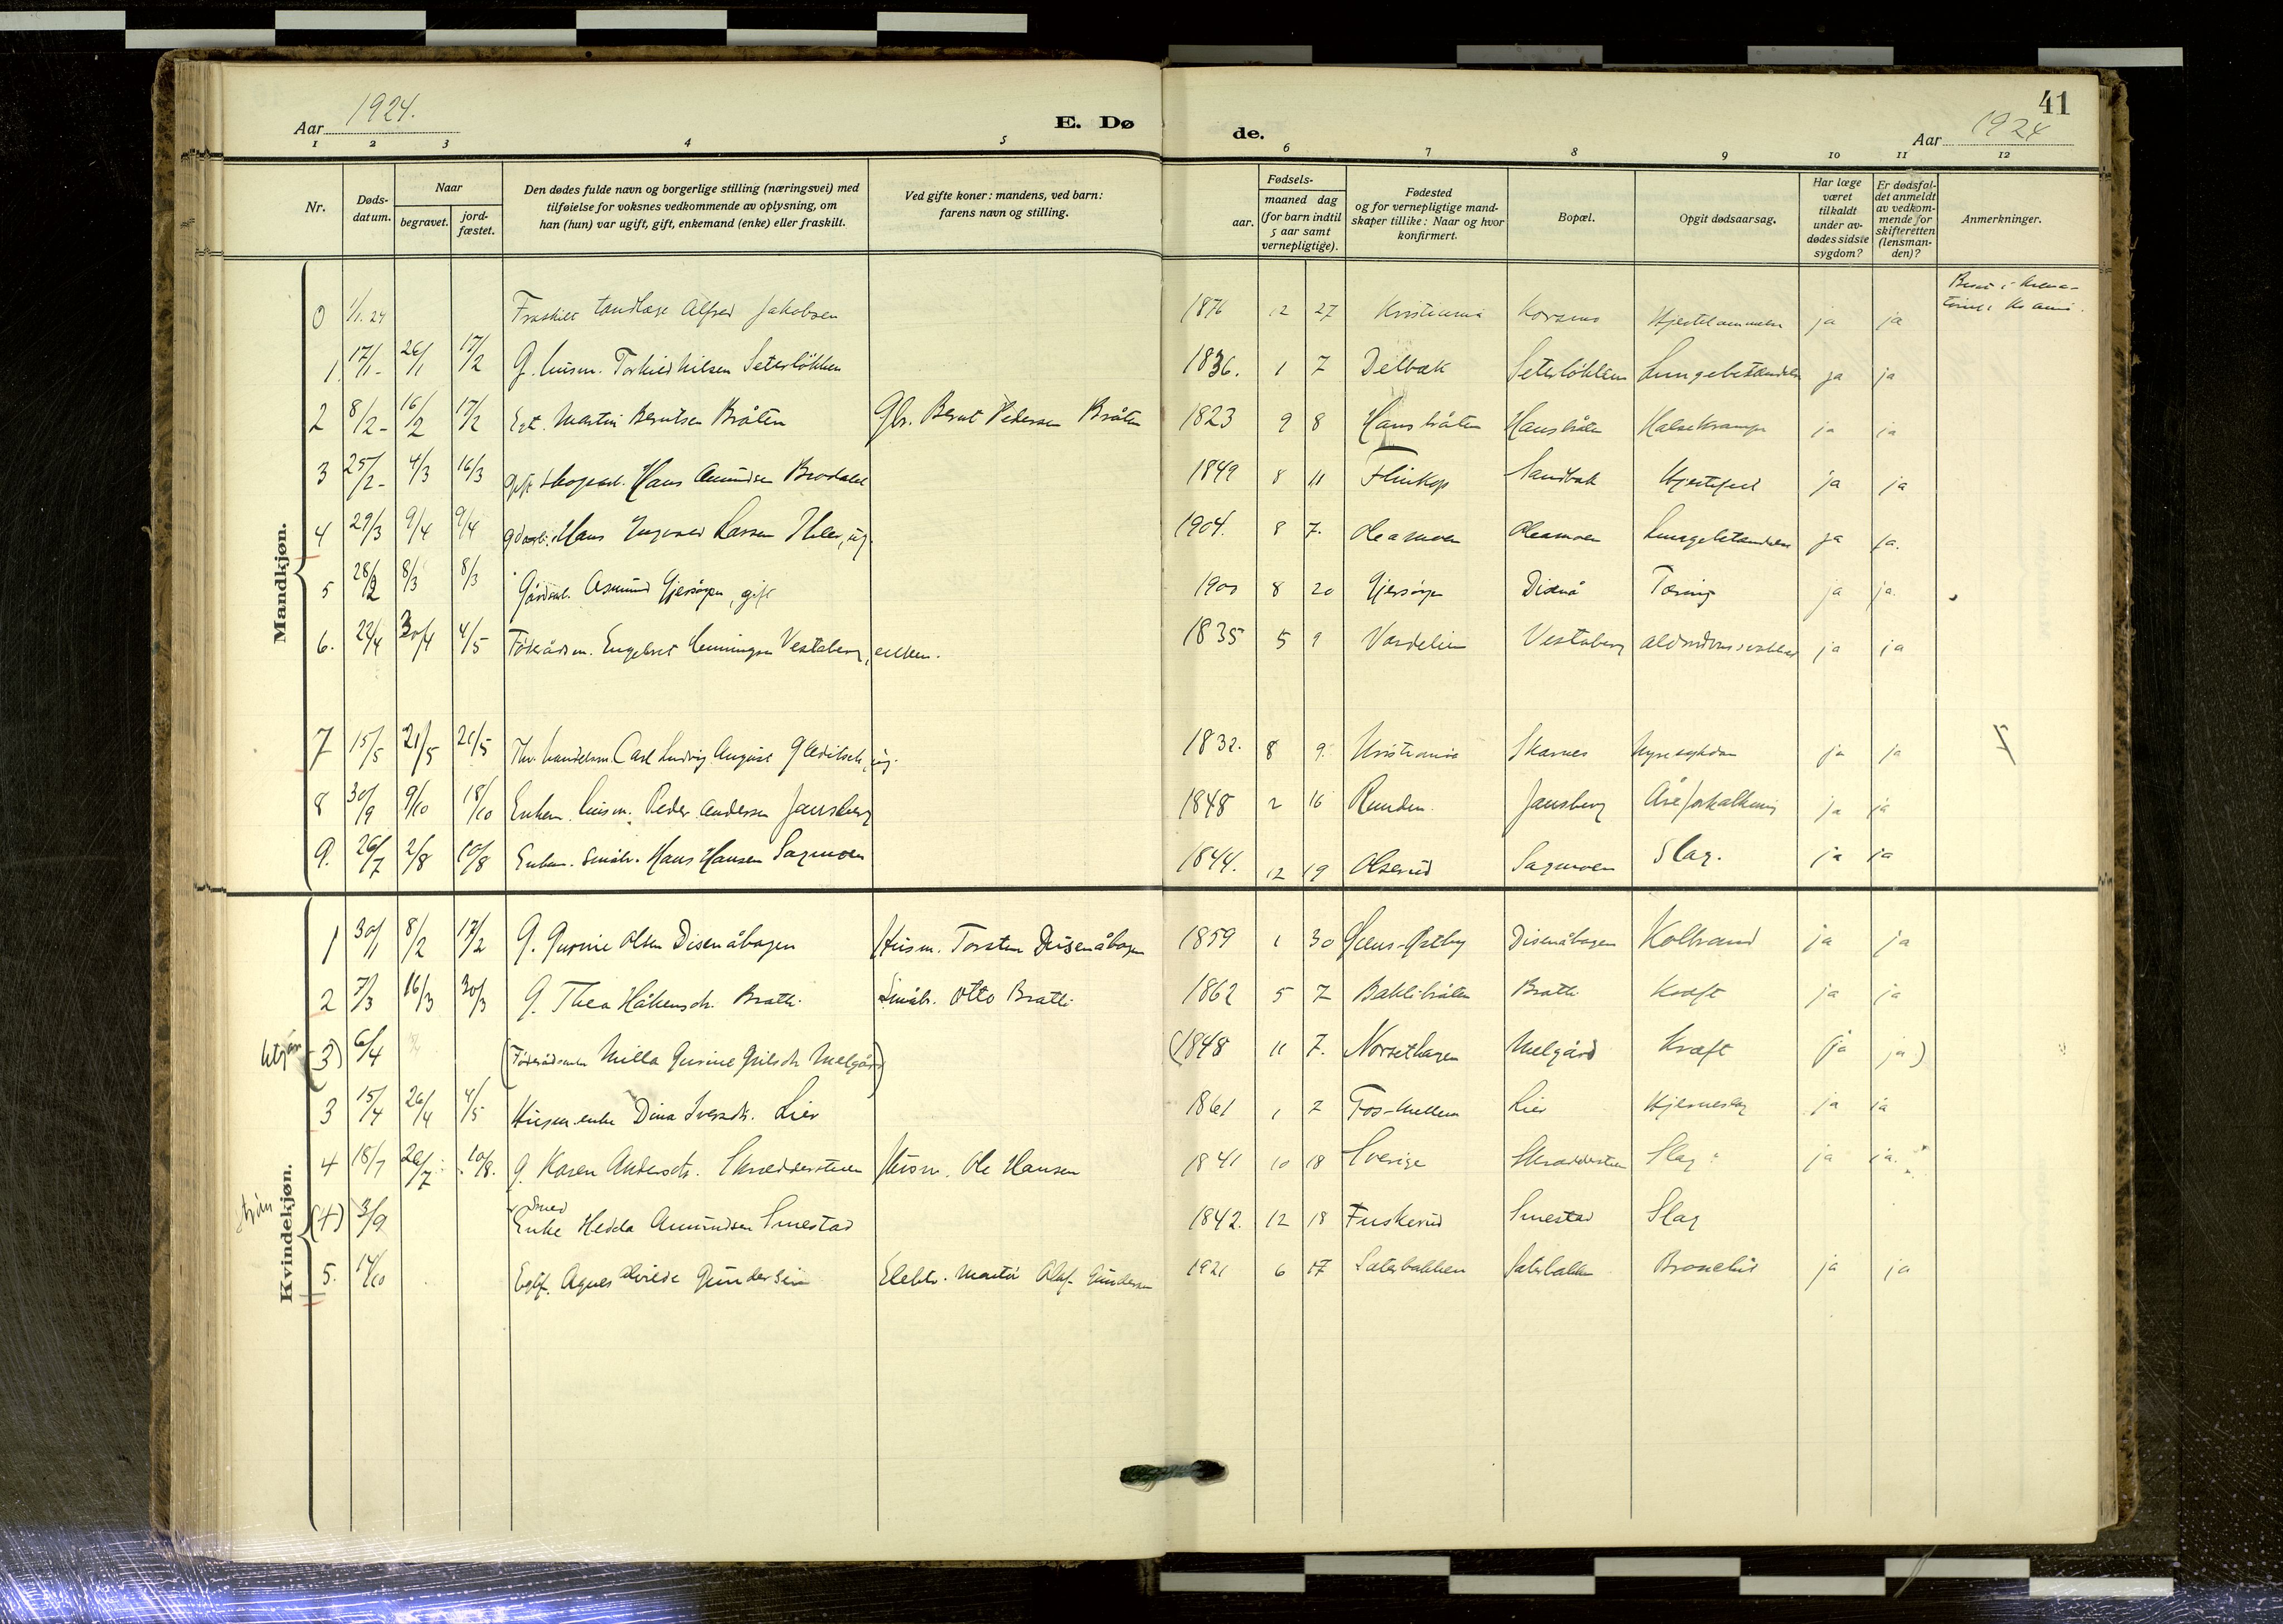 41
Aar 1924.
E. Døde.
Aar 1924
1 2 3 4 5 6 7 8 9 10 11 12
Nr.
Døds-
datum.
Naar
begravet.
jord-
fæstet.
Den dødes fulde navn og borgerlige stilling (næringsvei) med
tilføielse for voksnes vedkommende av oplysning, om
han (hun) var ugift, gift, enkemand (enke) eller fraskilt.
Ved gifte koner: mandens, ved barn:
farens navn og stilling.
Fødsels-
aar.
maaned dag
(for barn indtil
5 aar samt
vernepligtige).
Fødested
og for vernepligtige mand-
skaper tillike: Naar og hvor
konfirmert.
Bopæl.
Opgit dødsaarsag.
Har læge
været
tilkaldt
under av-
dødes sidste
sygdom?
Er dødsfal-
det anmeldt
av vedkom-
mende for
skifteretten
(lensman-
den)?
Anmerkninger.
Mandkjøn.
0 1/1.24 Fraskilt tandlæge Alfred Jakobsen 1876 12 27 Kristiania Korsmo ja ja
1. 17/1- 26/1 17/2 G. husm. Torkild Nilsen Seterløkken 1836. 1 7 Delbæk Seterløkken Lungebetændelse ja ja
2 8/2- 16/2 17/2 Martin Berntsen Bråten Gbr. Bernt Pedersen Bråten 1823 9 8 Hansbråten Hansbråten Halsekrampe ja ja
3 25/2- 4/3 16/3 Gift skogsarb. Hans Amundsen Brodalen 1849 8 11 Sandbak Hjertefeil ja ja
4 29/3 9/4 9/4 Hans Ingvald Larsen 1904. 8 7. Oleamoen Oleamoen Lungebetændelse ja ja.
5 28/2 8/3 8/3 Gårdsarb. Asmund Gjersøyen, gift 1900 8 20 Gjersøyen Disenå Tæring ja ja.
6. 22/4 30/4 4/5 Føderådsm. Engebret Henningsen Vestaberg, enkem. 1835 5 9 Vardelien Vestaberg ja ja
7 15/5 21/5 21/5 Fhv. handelsm. Carl Ludvig August Gleditsch, ug. 1832. 8 9. Kristiania Skarnes Nyresykdom ja ja
8 30/9 9/10 18/10 Enkem. husm. Peder Andersen Jansberg 1848 2 16 Runden. Jansberg Åreforkalkning ja ja
9. 26/7 2/8 10/8 Enkem. småbr. Hans Hansen Sagmoen 1844. 12 19 Olserud Sagmoen Slag. ja ja
Kvindekjøn.
1 30/1 8/2 17/2 G. Gurine Olsen Disenåhagen Husm. Torsten Disenåhagen 1859 1 30 Disenåhagen Koldbrand ja ja
2 7/3 16/3 30/3 G. Thea Håkensdtr. Bratli Småbr. Otto Bratli 1862 5 7 Baklibråten Bratli Kræft ja ja
utgår (3) 6/4 (Føderådsenke Milla Gurine Melgård) (1848 11 7. Norsethagen Melgård Kræft (ja ja)
3 15/4 26/4 4/5 Husm. enke Dina Iversdtr. Lier 1861 1 2 Fos-Mellem Lier Hjerneslag ja ja
4 18/7 26/7 10/8. G. Karen Andersdtr. Skrædderstuen Husm. Ole Hansen 1841 10 18 Sverige Skrædderstuen Slag ja ja.
utgår (4) 3/9 Enke Hedda Amundsen Smestad 1842. 12 18 Fuskerud Smestad Slag
5. 14/10 Agnes Gundersen Elektr. montør Olaf Gundersen 1921 6 17 Sæterbakken Sæterbakken Bronchit ja ja